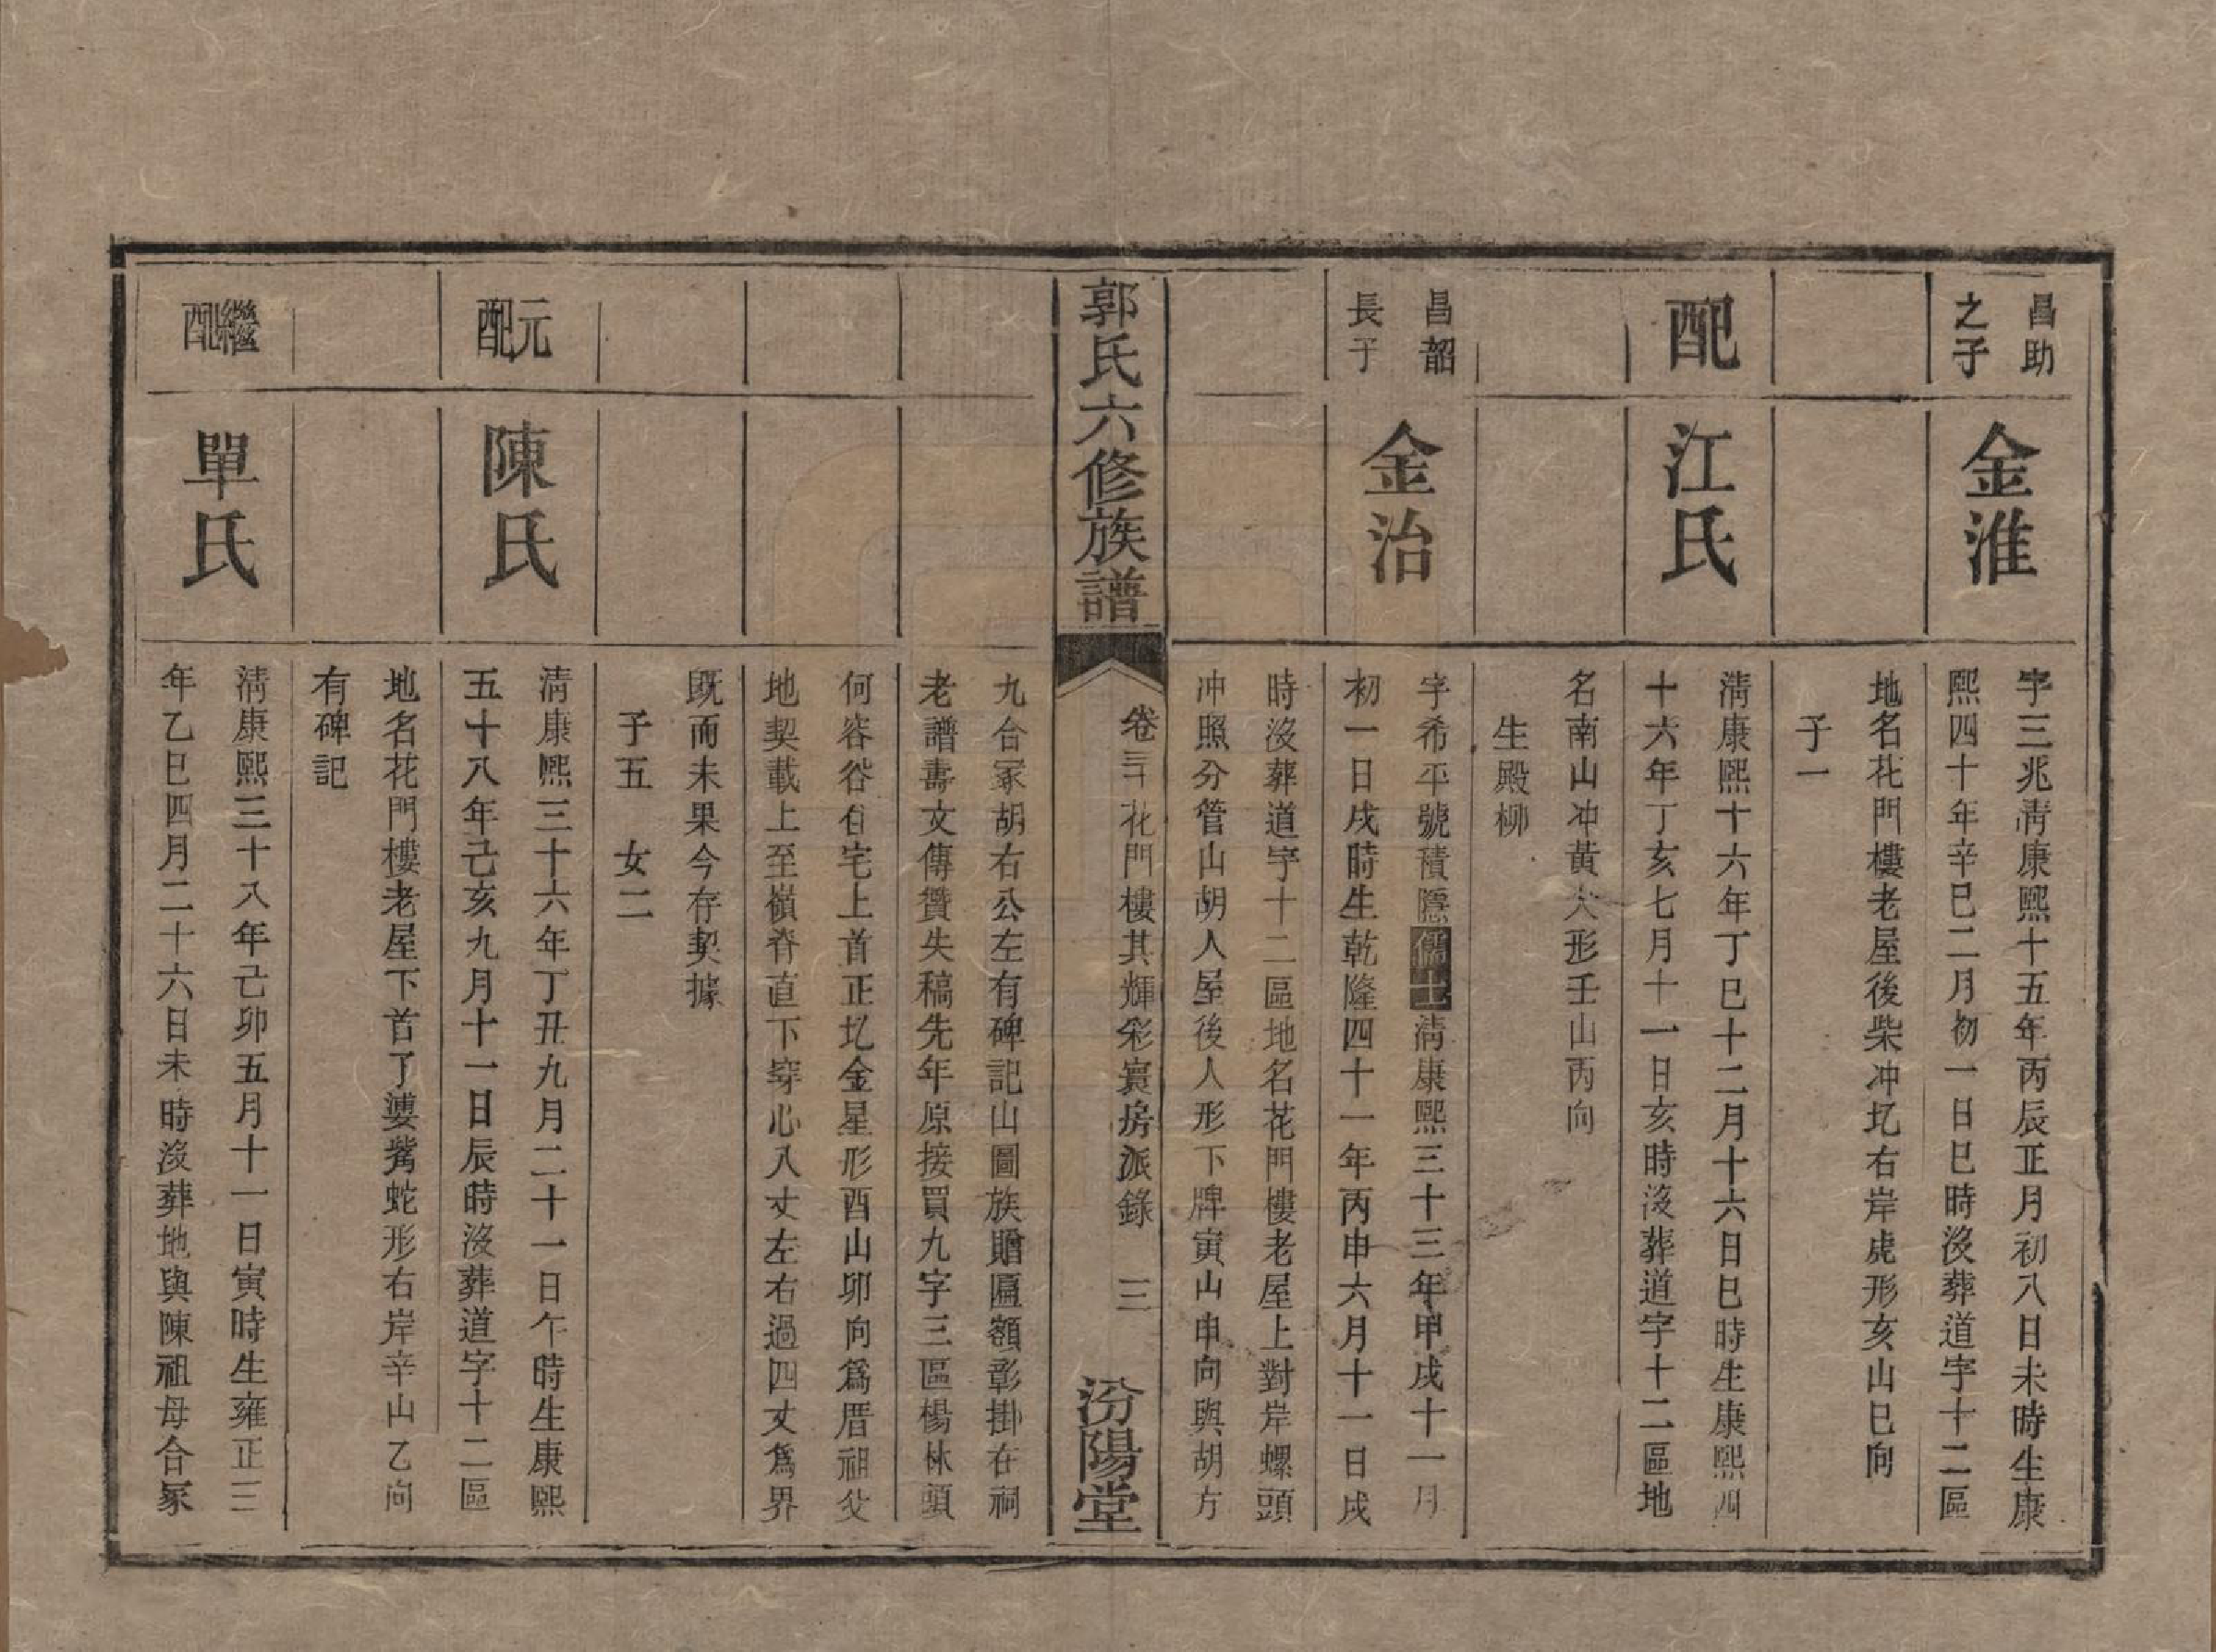 昌助
之子
金淮
字三兆清康熙十五年丙辰正月初八日未時生康
熙四十年辛巳二月初一日巳時沒葬道字十二區
地名花門樓老屋後柴冲圪右岸虎形亥山巳向
子一
配
江氏
清康熙十六年丁巳十二月十六日巳時生康熙四
十六年丁亥七月十一日亥時沒葬道字十二區地
名南山冲黃犬形壬山丙向
生殿柳
昌韶
長子
金治
字希平號積隱儒士清康熙三十三年甲戌十一月
初一日戌時生乾隆四十一年丙申六月十一日戌
時沒葬道字十二區地名花門樓老屋上對岸螺頭
冲照分管山胡人屋後人形下牌寅山申向與胡方
郭氏六修族譜
卷三十花門樓其輝彩賓房派錄 三
汾陽堂
九合冢胡右公左有碑記山圖族贈匾額彰掛在祠
老譜壽文傳贊失稿先年原接買九字三區楊林頭
何容谷住宅上首正圪金星形酉山卯向爲厝祖父
地契載上至嶺脊直下穿心八丈左右過四丈爲界
既而未果今存契據
子五 女二
元配
陳氏
清康熙三十六年丁丑九月二十一日午時生康熙
五十八年己亥九月十一日辰時沒葬道字十二區
地名花門樓老屋下首了婆嘴蛇形右岸辛山乙向
有碑記
繼配
單氏
清康熙三十八年己卯五月十一日寅時生雍正三
年乙巳四月二十六日未時沒葬地與陳祖母合冢